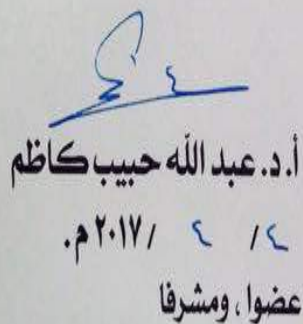 أ.د. عبد الله حبيب كاظم
٤/ ٤ /٢٠١٧م.
عضوا ، ومشرفا